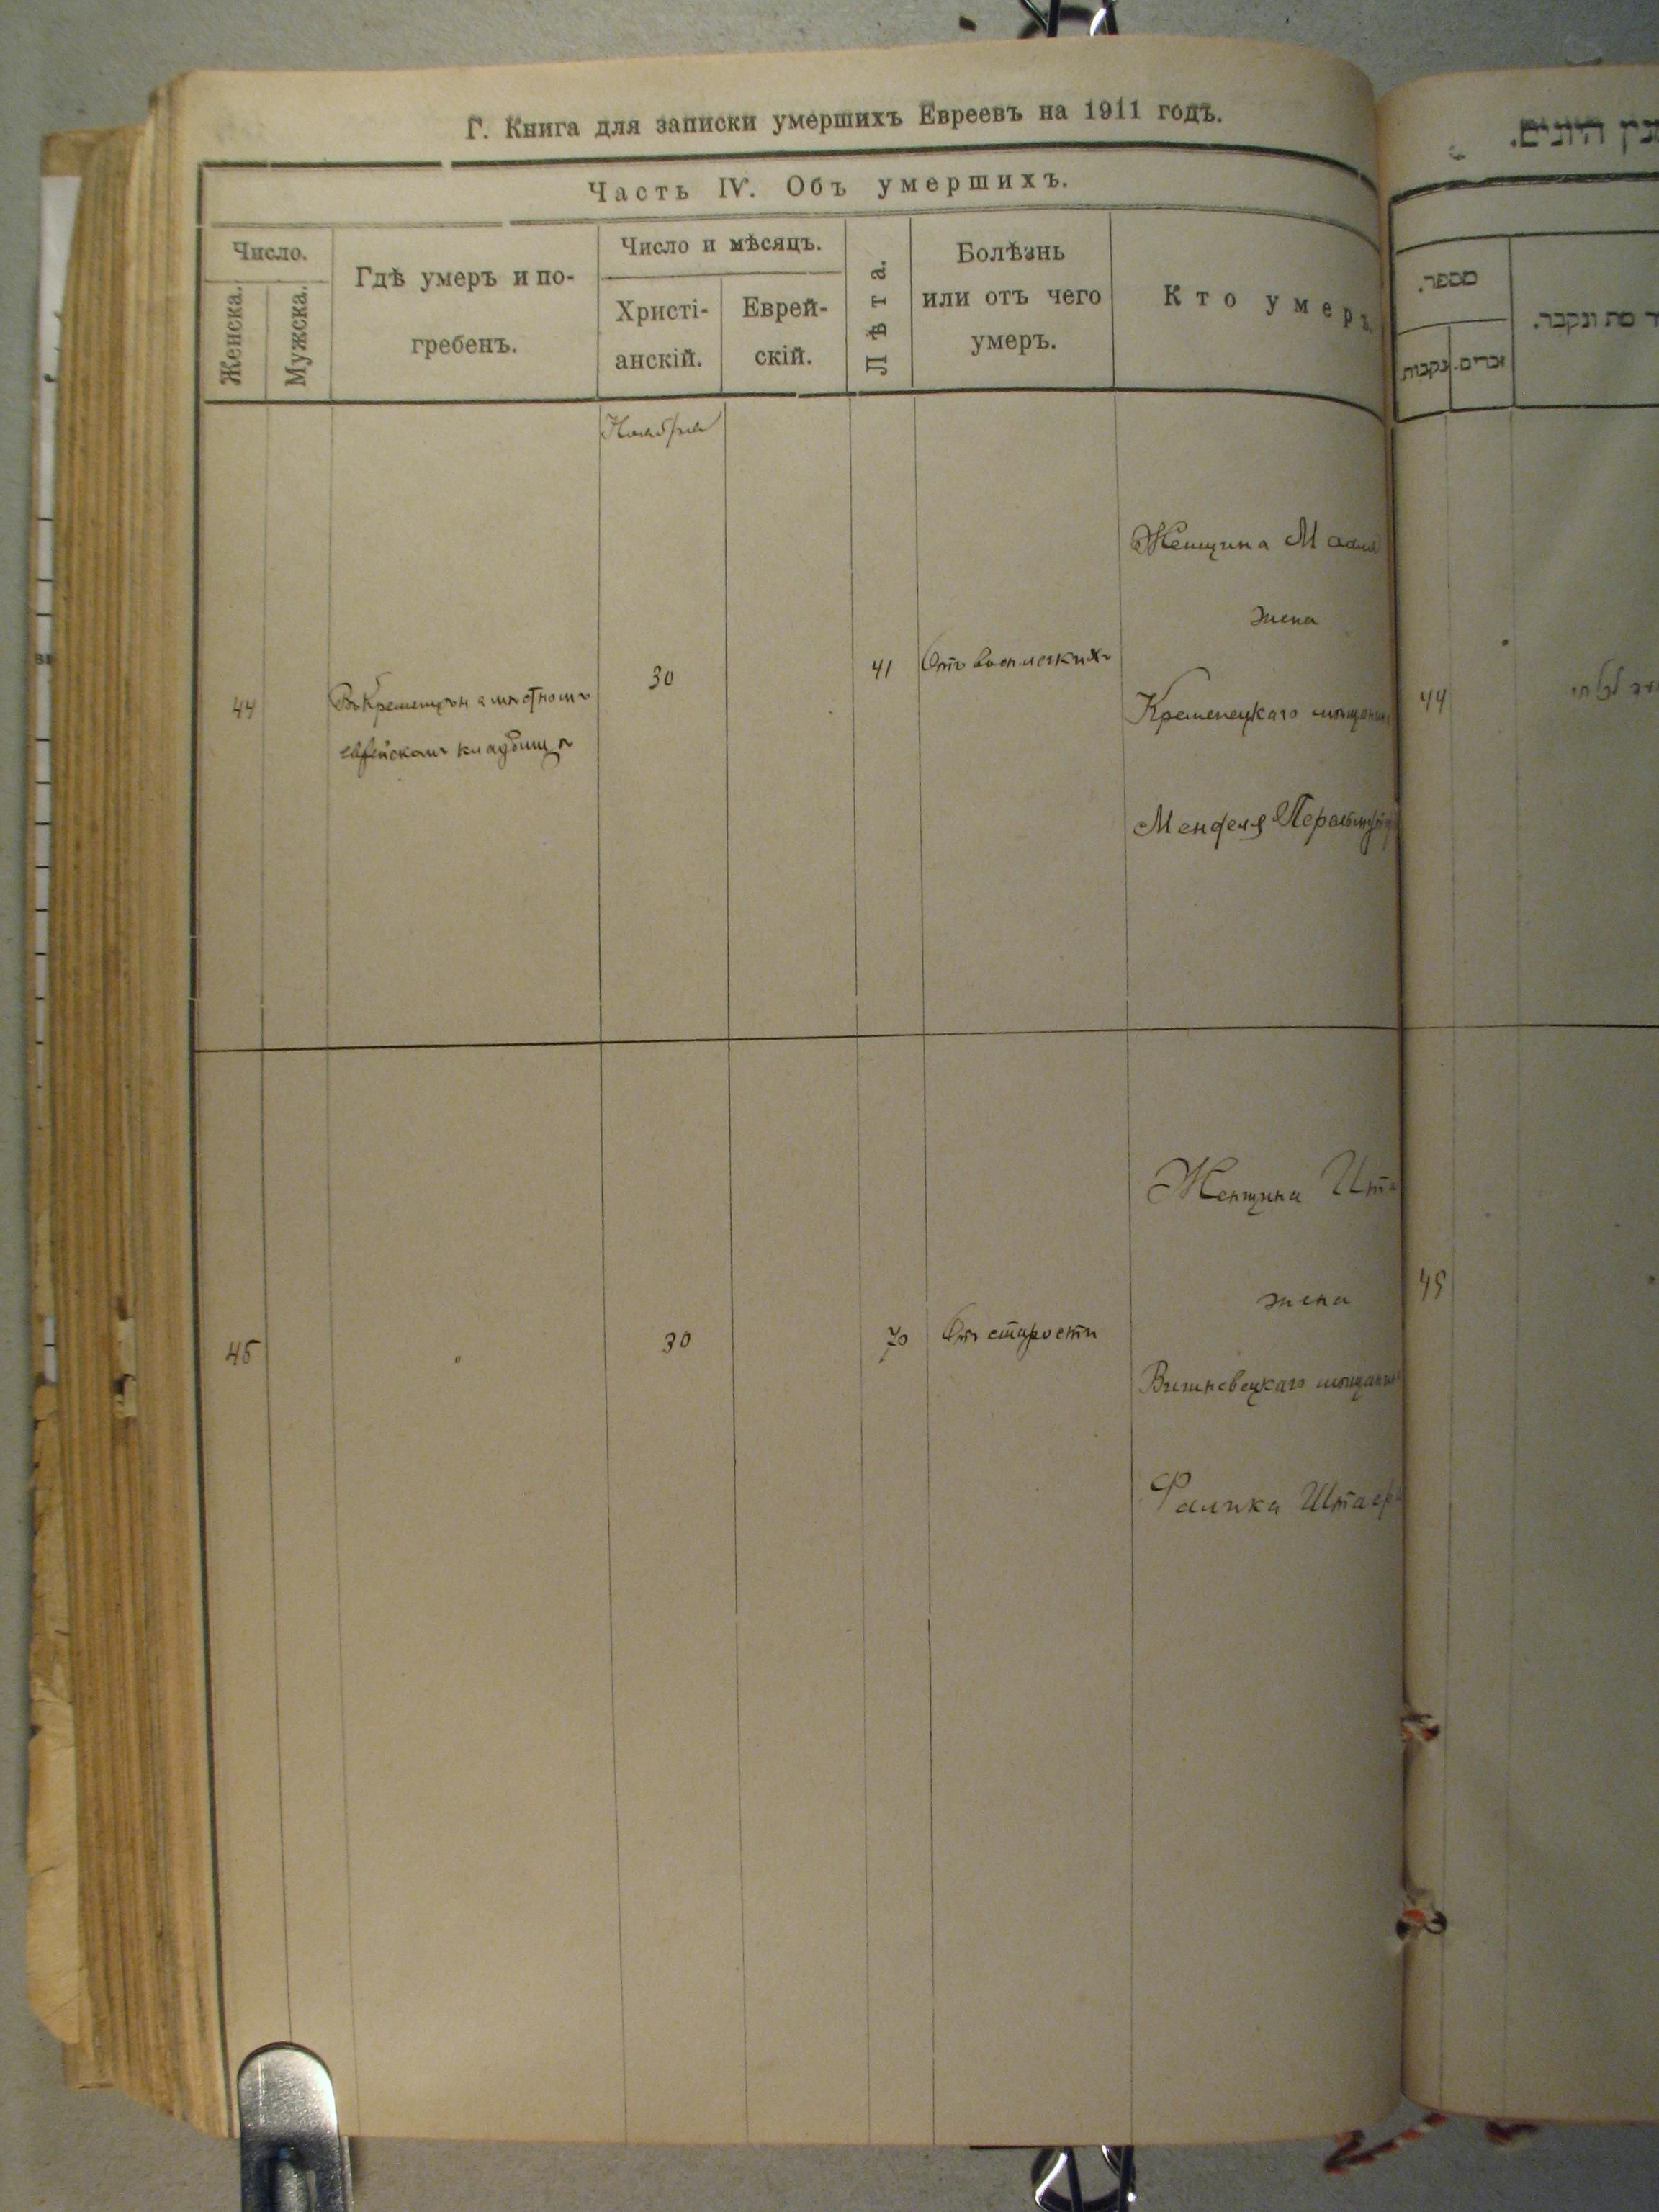 Г. Книга для записки умершихъ Евреевъ на 1911 годъ.
Часть IV. Объ умершихъ.
Число.
Женска.
Мужска.
Гдѣ умеръ и по-
гребенъ.
Число и мѣсяцъ.
Христі-
анскій.
Еврей-
скій.
Лѣта.
Болѣзнь
или отъ чего
умеръ.
Кто умеръ.
Ноября
44
Въ Кременцѣ на мѣстномъ
еврейскомъ кладбищѣ
30
41
Отъ восп. легкихъ
Женщина
жена
Кременецкаго мѣщанина
Менделя
45
"
30
70
Отъ старости
Женщина Ита
жена
Вишневецкаго мѣщанина
Фалика
מספר.
זכרים.
נקבות
מת ונקבר.
44
45